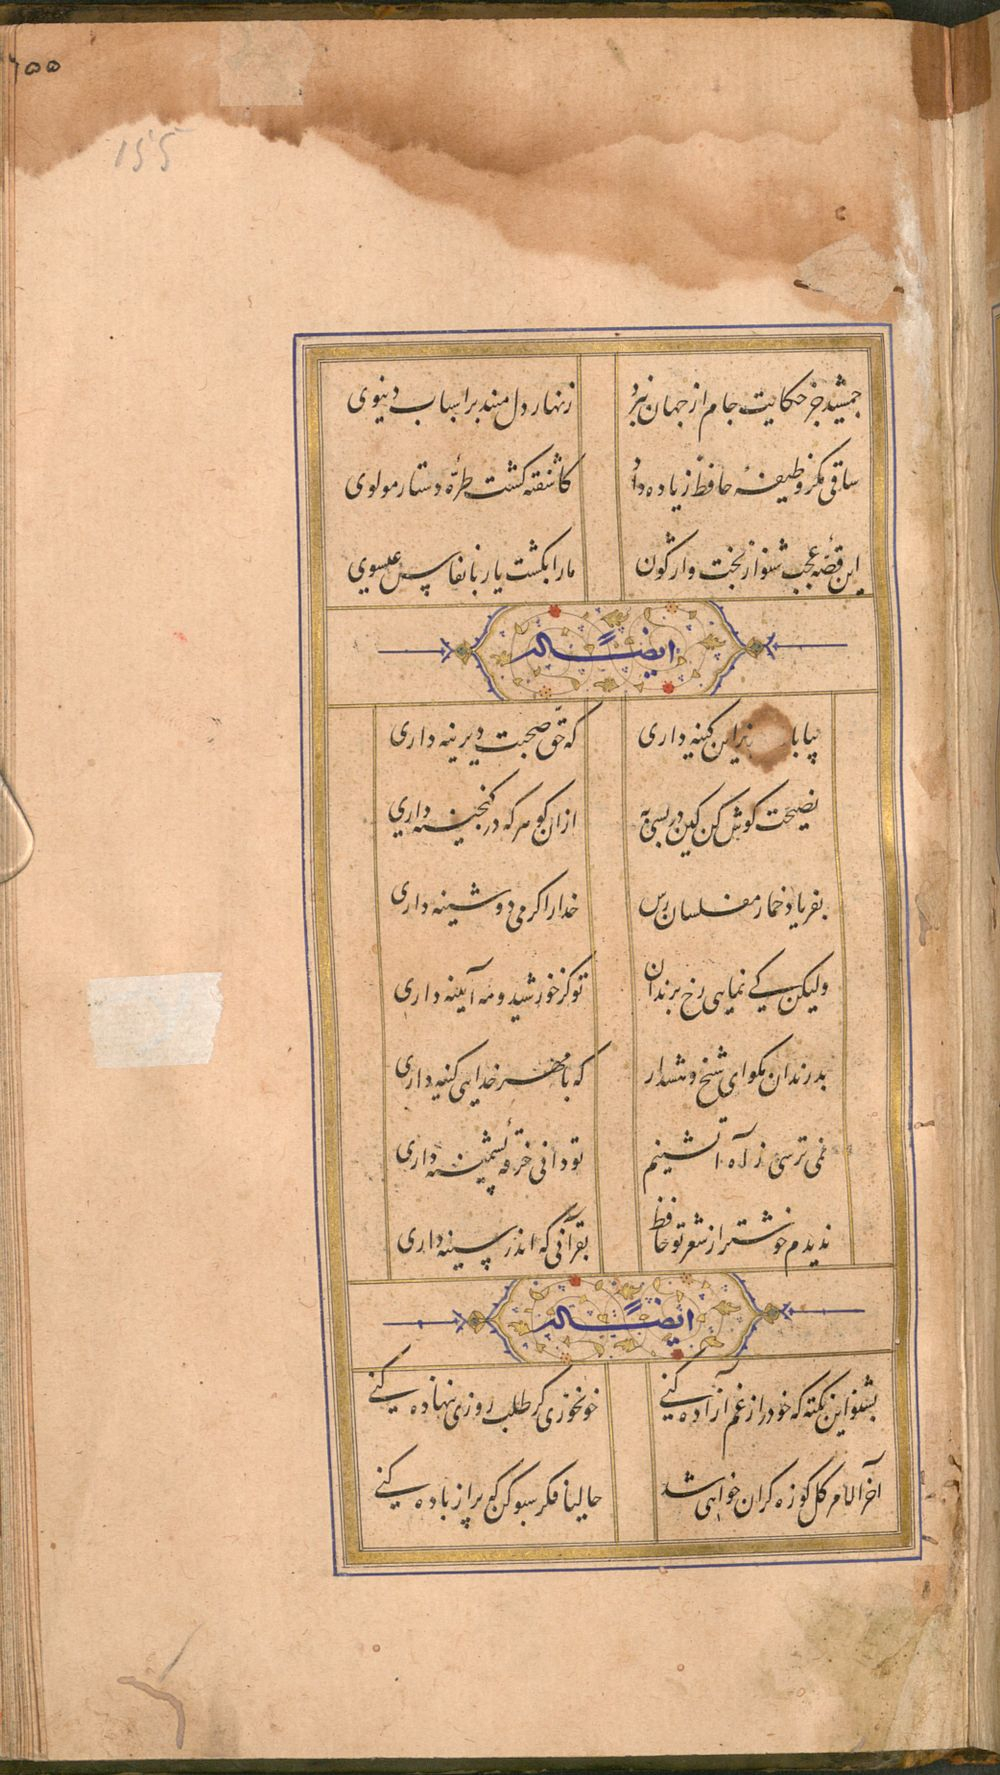 ۱۵۵
155
جمشید جز حکایت جام از جهان نبرد زنهار دل مبند بر اسباب دینوی
ساقی مگر وظیفهٔ حافظ زیاده داد کاشفته کشت طرّهٔ دستار مولوی
این قصّهٔ عجب شنو از بخت واژگون مارا بکشت یار بانفاس عیسوی
ایضاً له
بیا با زین کینه داری که حقّ صحبت دیرینه داری
نصیحت کوش کن کین در بسی به ازان کوهر که در کنجینه داری
بفریاد خمار مفلسان رس خدارا کر می دوشینه داری
ولیکن کی نمایی رخ برندان تو کز خورشید و مه آیینه داری
بد رندان مکو ای شیخ و هشدار که با مهر خدایی کینه داری
نمی ترسی ز آه آتشینم تو دانی خرقهٔ پشمینه داری
ندیدم خوشتر از شعر تو حافظ بقرآنی که اندر سینه داری
ایضاً له
بشنو این نکته که خود را ز غم آزاده کنی خون خوری کر طلب روزی ننهاده کنی
آخر الامر کل کوزه کران خواهی شد حالیا فکر سبو کن که پر از باده کنی